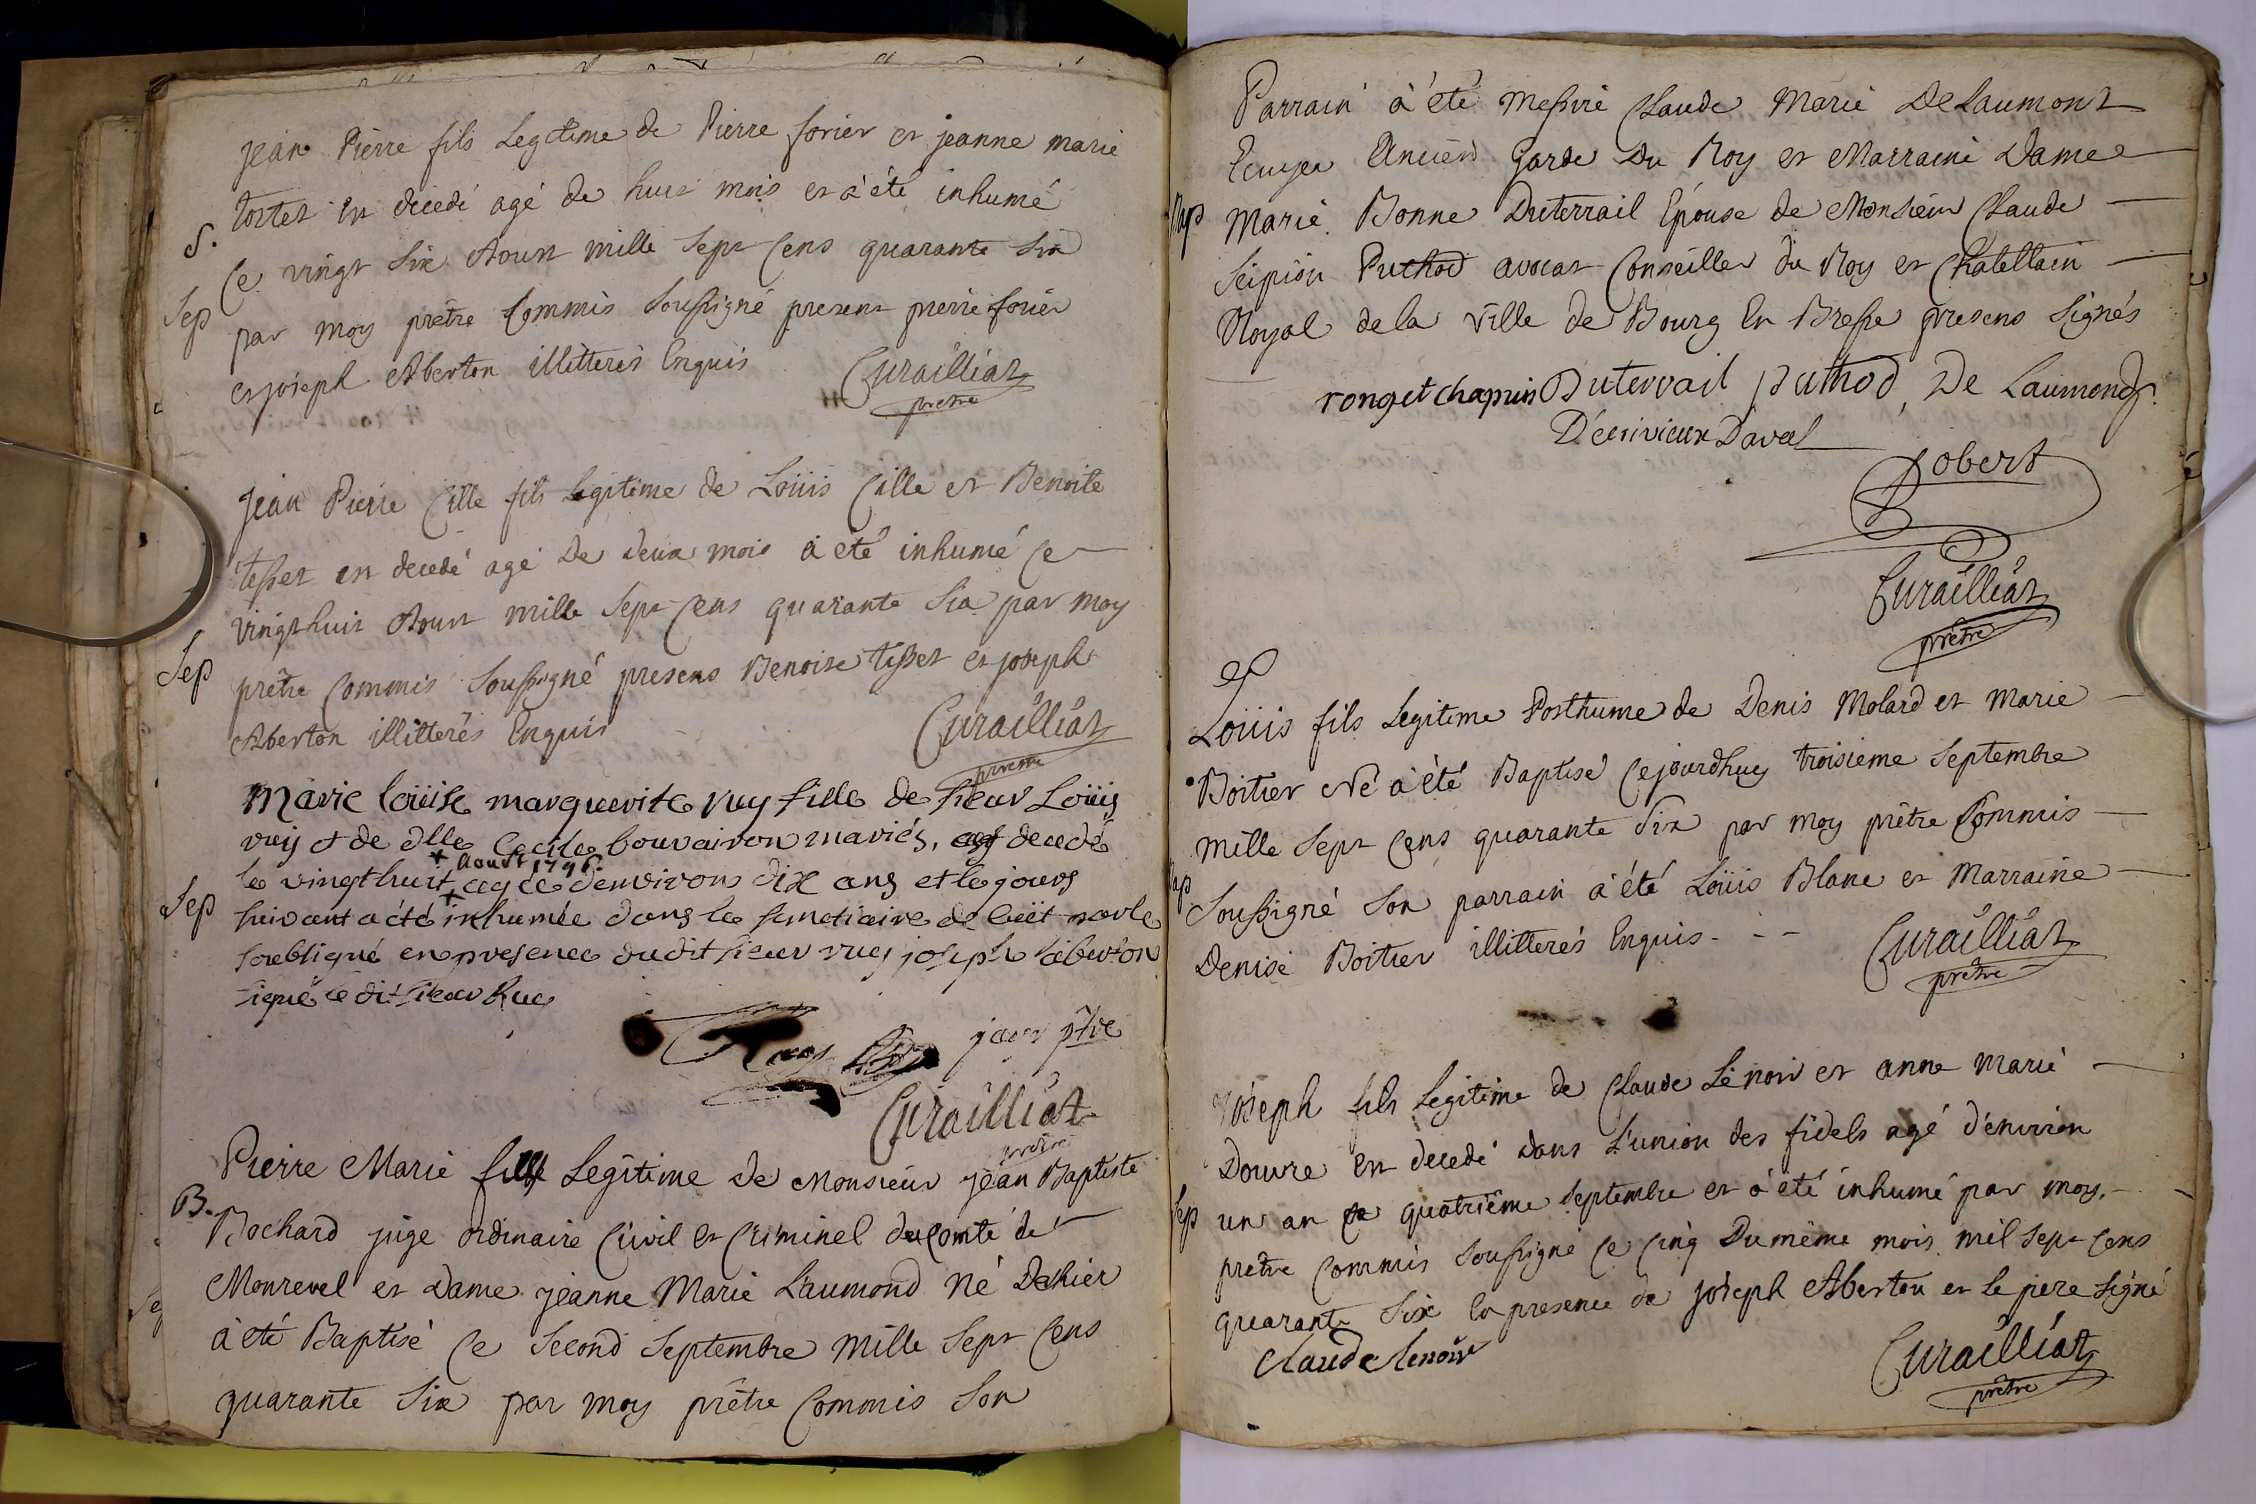 jean Pierre fils Legitime de Pierre forier et jeanne marie
tortet est decedé agé de huit mois et à été inhumé
S.
Ce vingt Six Aoust mille Sept Cens quarante Six
Sep
par moy prêtre Commis Soussigné presens pierre forier
et joseph Aberton illitterés Enquis
Curailliat
prêtre
Jean Pierre Cille fils Legitime de Loüis Cille et Benoite
tisset est decedé agé De deux mois à été inhumé Ce
vingthuit Aoust mille Sept Cens quarante Six par moy
Sep
prêtre Commis Soussigné presens Benoite tisset et joseph
Aberton illitterés Enquis
Curailliat
prêtre
Marie loüise marguerite ruy fille de sieur Loüis
ruy et de dlle Cecile bouvairon mariés, est decedé
+ Aoust 1746.
le vingt huit + agée denvirons dix ans et le jours
Sep
suivant a été inhumée dans le
soubsigné en presence dudit sieur ruy joseph aberton
signé le dit sieur Ruy
Ruy
jaer ptre
Curailliat
prêtre
Pierre Marie fils Legitime de Monsieur jean Baptiste
B.
Bochard juge ordinaire Civil et Criminel du Comté de
Monrevel et Dame jeanne Marie Laumond Né Dehier
à été Baptisé Ce Second Septembre Mille Sept Cens
quarante Six par moy prêtre Commis Son
Parrain à été Messire Claude Marie De Laumont
Ecuyer Ancien Garde Du Roy et Marraine Dame
Bap
Marie Bonne Duterrail Epouse de Monsieur Claude
Scipion Puthod avocat Conseiller du Roy et Chatellain
Royal de la Ville de Bourg En Bresse presens Signés
ronget chapuis Duterrail puthod De Laumond
Décrivieux Davel
Robert
Curailliat
prêtre
Loüis fils Legitime Posthume de Denis Molard et Marie
Boitier Né à été Baptisé Cejourdhuy troisieme Septembre
Mille Sept Cens quarante Six par moy prêtre Commis
Bap
Soussigné Son parrain à été Loüis Blanc et Marraine
Denise Boitier illitterés Enquis - - -
Curailliat
prêtre
Joseph fils Legitime de Claude Lenoir et anne Marie
Douvre est decedé dans L'union des fidels agé d'environ
Sep
un an ce quatriême Septembre et à été inhumé par moy
prêtre Commis Soussigné Ce Cinq Du même mois mil Sept Cens
quarante Six En presence de joseph Aberton et le pere Signé
Claude lenoir
Curailliat
prêtre